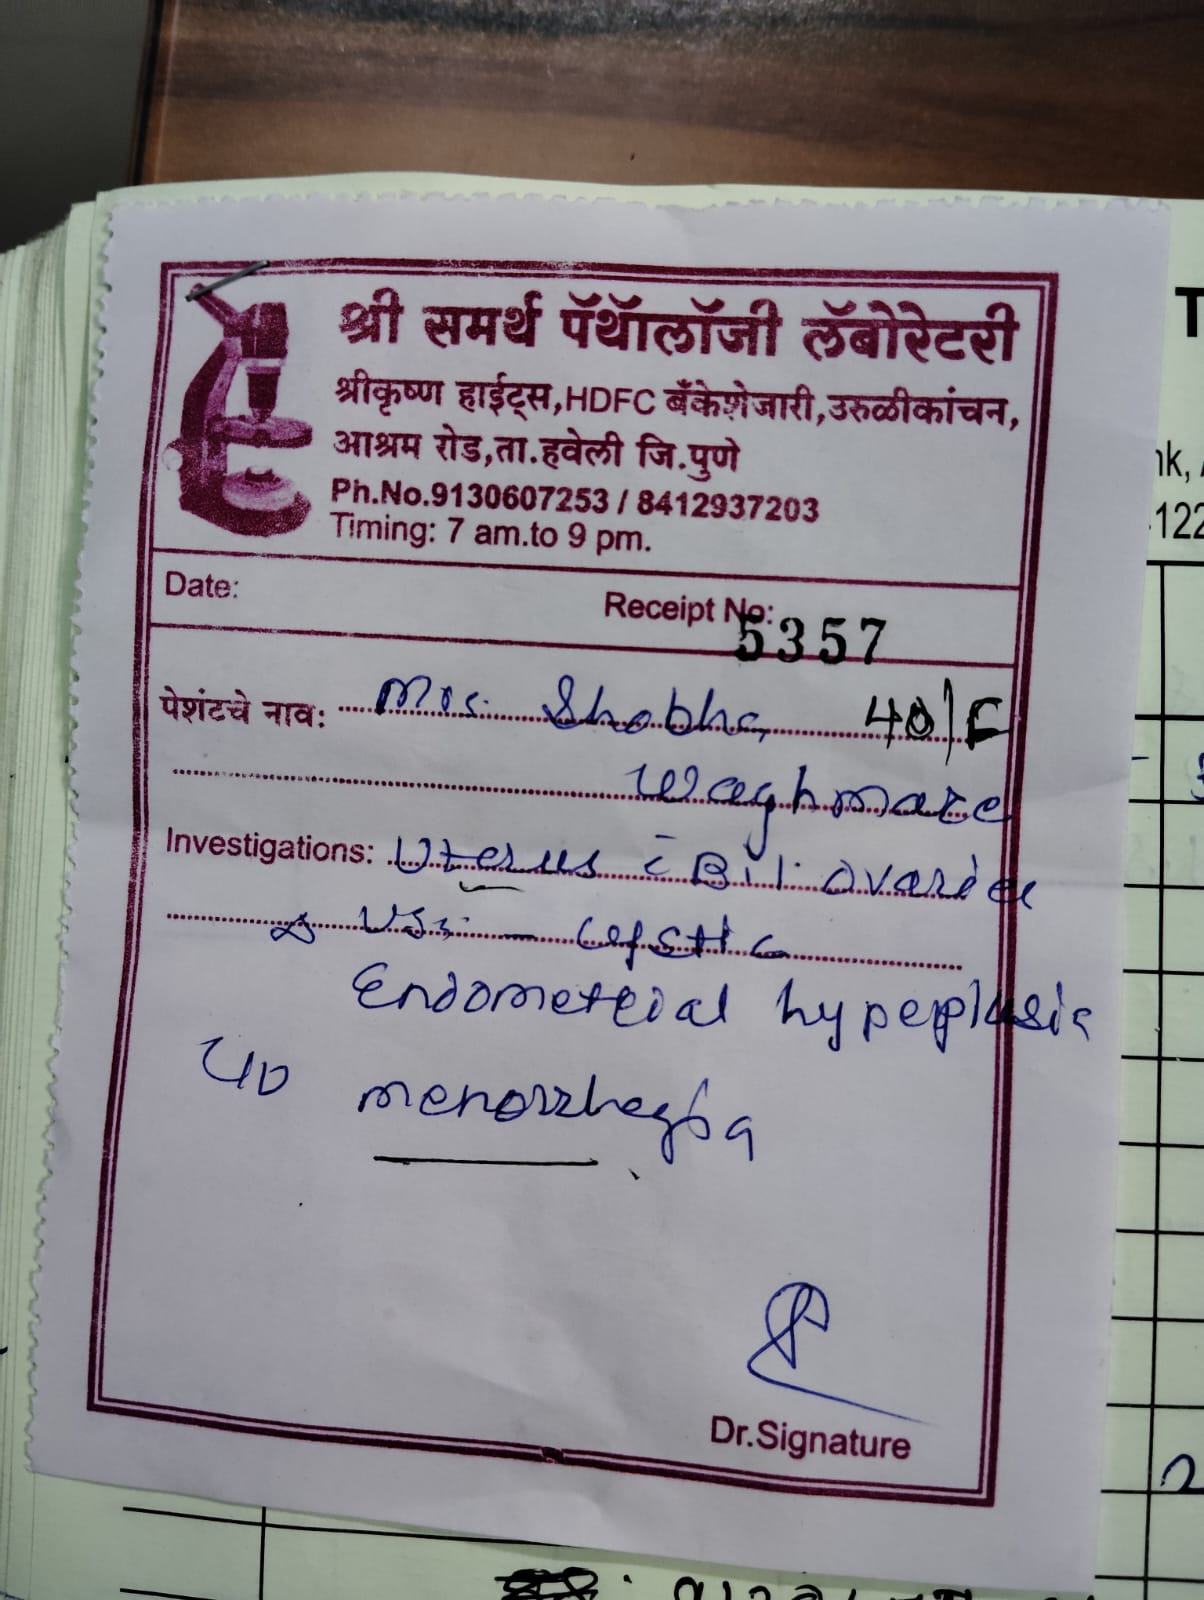 श्री समर्थ पॅथॅालॉजी लॅबोरेटरी
श्रीकृष्ण हाईट्स,HDFC बँकेशेजारी,उरुळीकांचन,
आश्रम रोड,ता.हवेली जि.पुणे
Ph.No.9130607253 / 8412937203
Timing: 7 am.to 9 pm.
Date:
Receipt No:
5357
पेशंटचे नाव: Mrs. Shobha 40/F
Waghmare
Investigations: Uterus c̄ Bil. ovaries
USG - cystic
Endometrial hyperplasia
menorrhagia
Dr.Signature
T
nk,
122